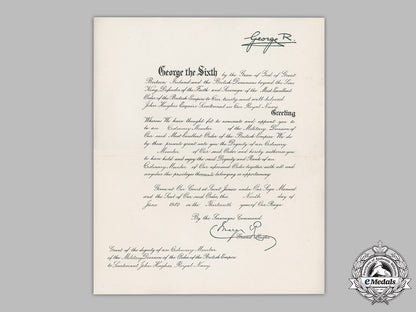 George R.
George the Sixth by the Grace of God of Great
Britain, Ireland and the British Dominions beyond the Seas
King, Defender of the Faith and Sovereign of the Most Excellent
Order of the British Empire to Our trusty and well beloved
John Hughes Esquire Lieutenant in Our Royal Navy
Greeting
Whereas We have thought fit to nominate and appoint you to
be an Ordinary Member of the Military Division of
Our said Most Excellent Order of the British Empire We do
by these presents grant unto you the Dignity of an Ordinary
Member of Our said Order and hereby authorise you
to have hold and enjoy the said Dignity and Rank of an
Ordinary Member of Our aforesaid Order together with all and
singular the privileges thereunto belonging or appertaining
Given at Our Court at Saint James's under Our Sign Manual
and the Seal of Our said Order this Ninth day of
June 19 in the Thirteenth year of Our Reign
By the Sovereign's Command
Grant of the dignity of an Ordinary Member
of the Military Division of the Order of the British Empire
to Lieutenant John Hughes, Royal Navy